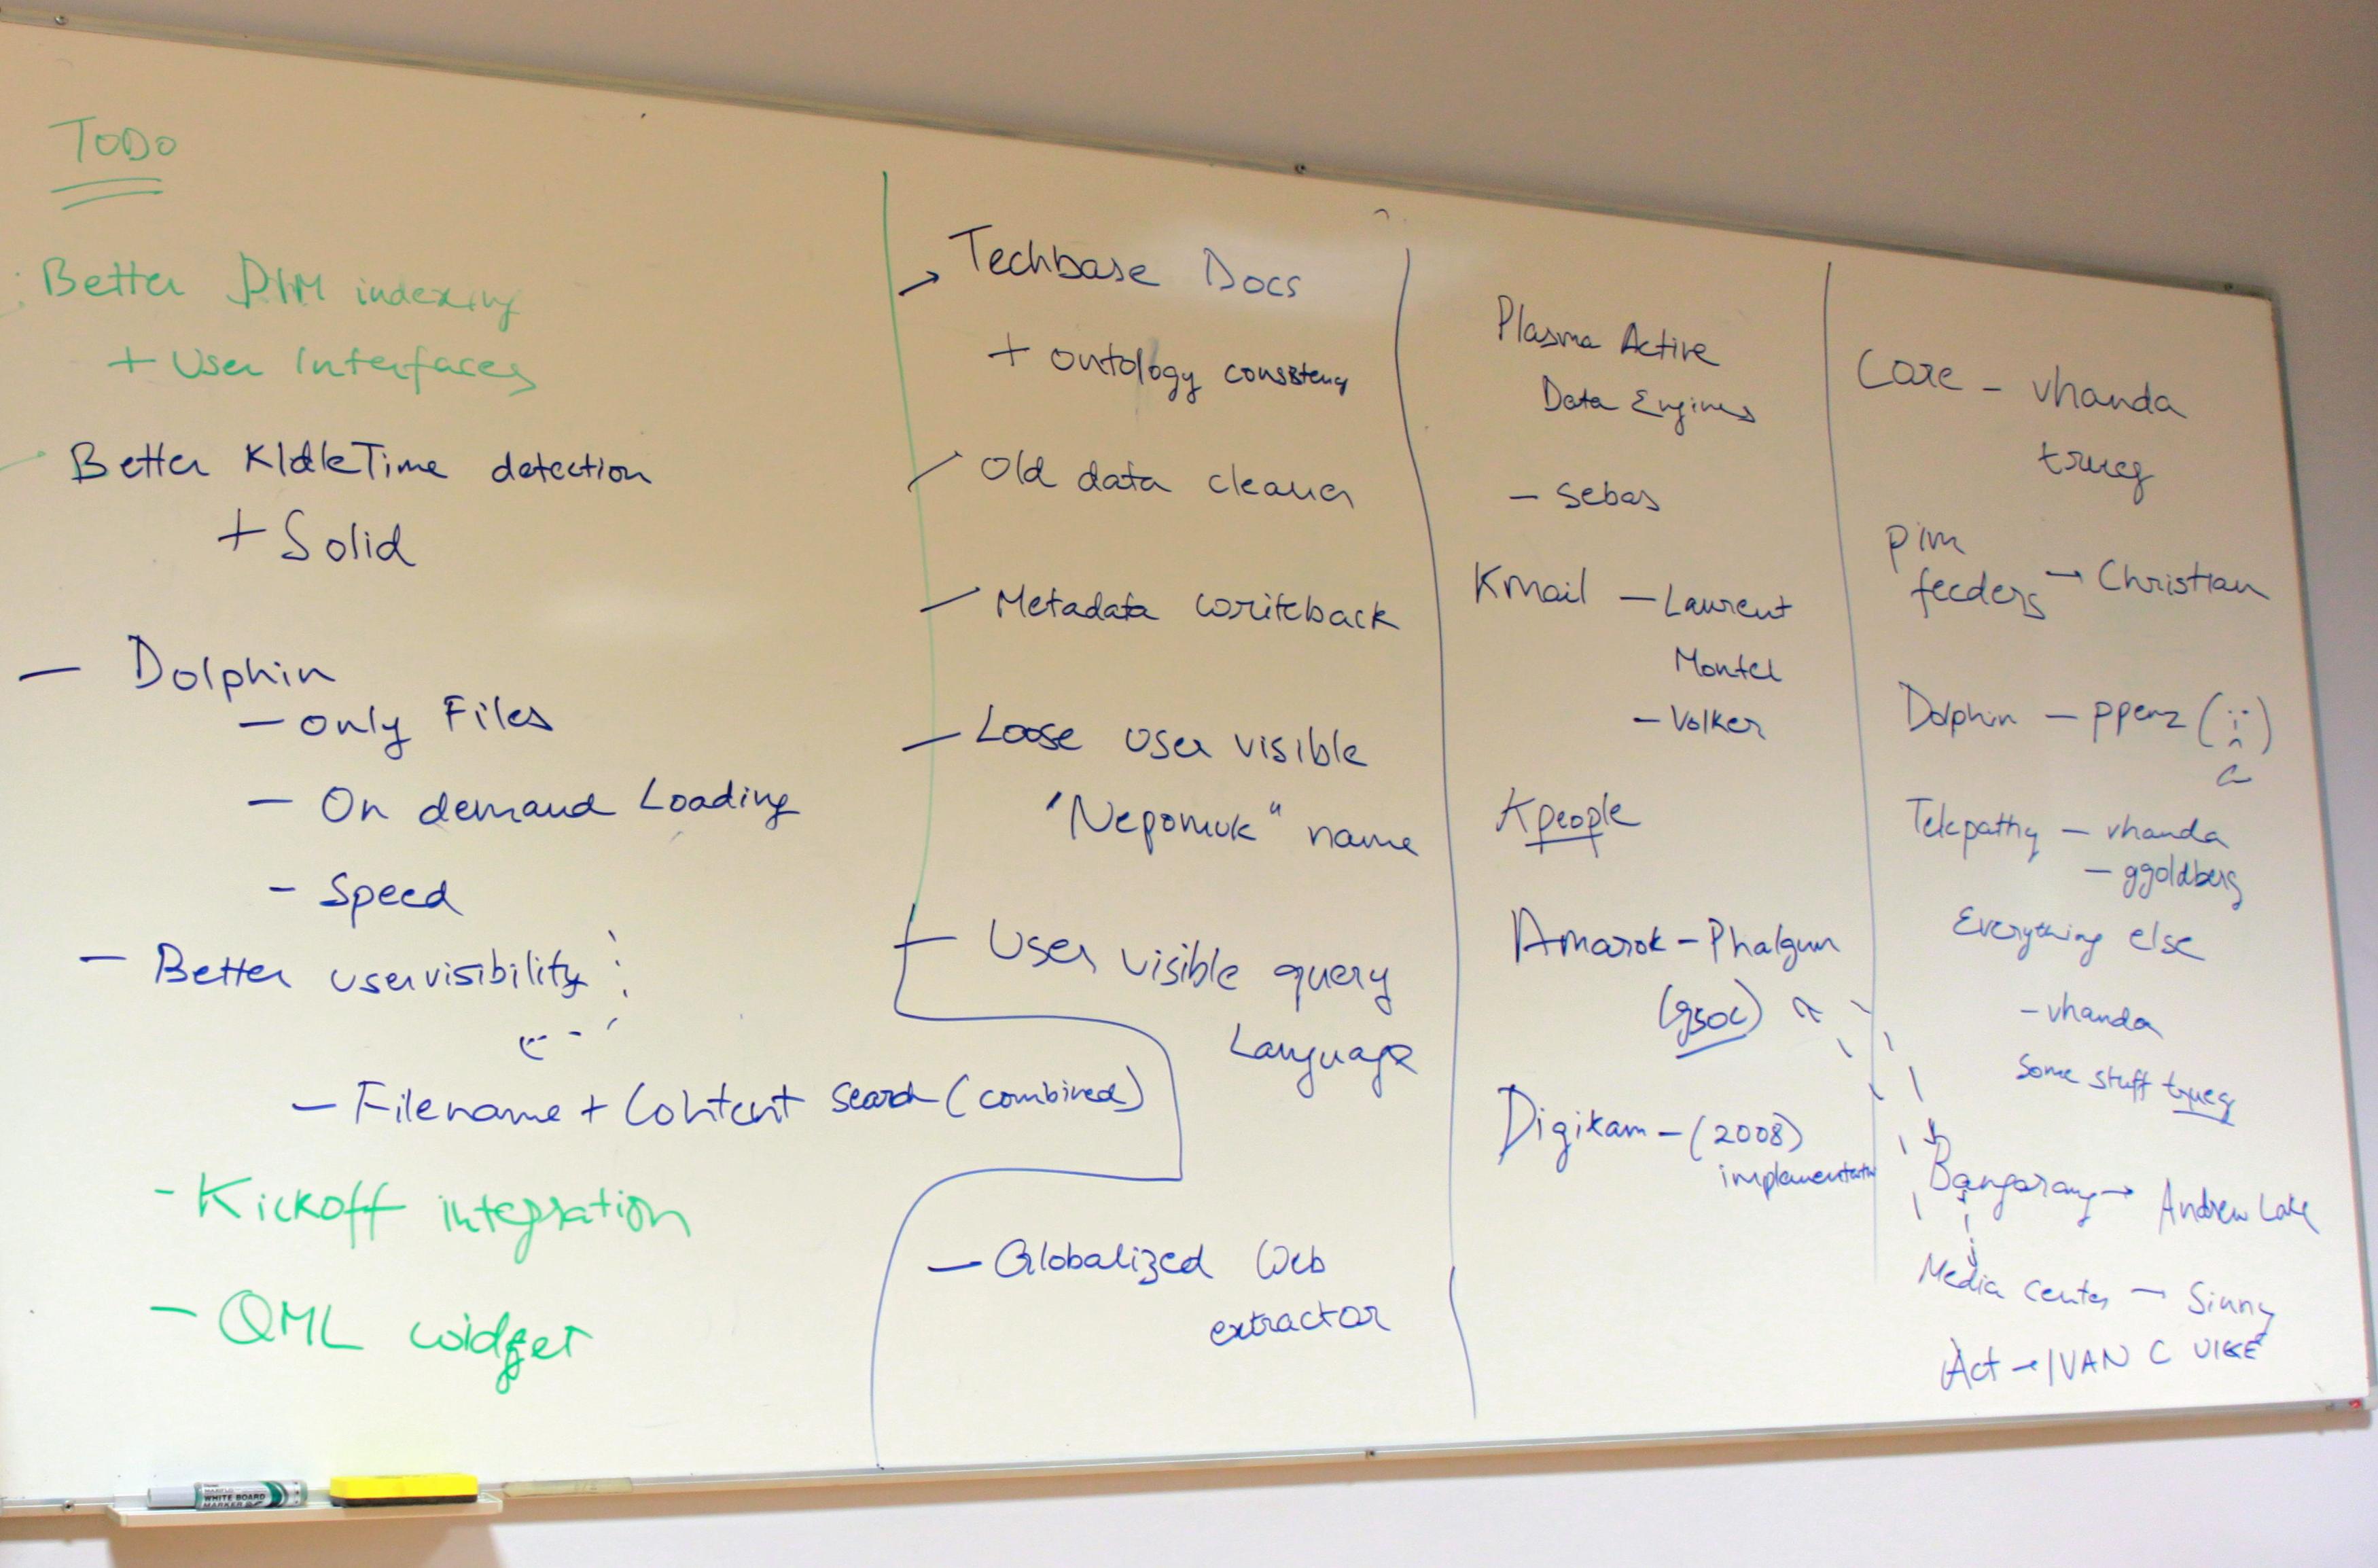 TODO
Better PIM indexing
+ User Interfaces
Better KIdleTime detection
+ Solid
— Dolphin
— only Files
— On demand Loading
- Speed
— Better uservisibility
— Filename + Content search (combined)
- Kickoff integration
- QML widget
→ Techbase Docs
+ ontology consistency
— Old data cleaner
— Metadata writeback
— Loose user visible
"Nepomuk" name
— User visible query
Language
— Globalized Web
extractor
Plasma Active
Data Engines
— sebas
Kmail — Laurent
Montel
— Volker
Kpeople
Amarok - Phalgun
(gsoc)
Digikam - (2008)
implementation
Core — vhanda
trueg
pim
feeders → Christian
Dolphin — ppenz
Telepathy — vhanda
— ggoldberg
Everything else
- vhanda
some stuff trueg
Bangarang → Andrew Lake
Media center → Sinny
Act → IVAN C
WHITE BOARD
MARKER